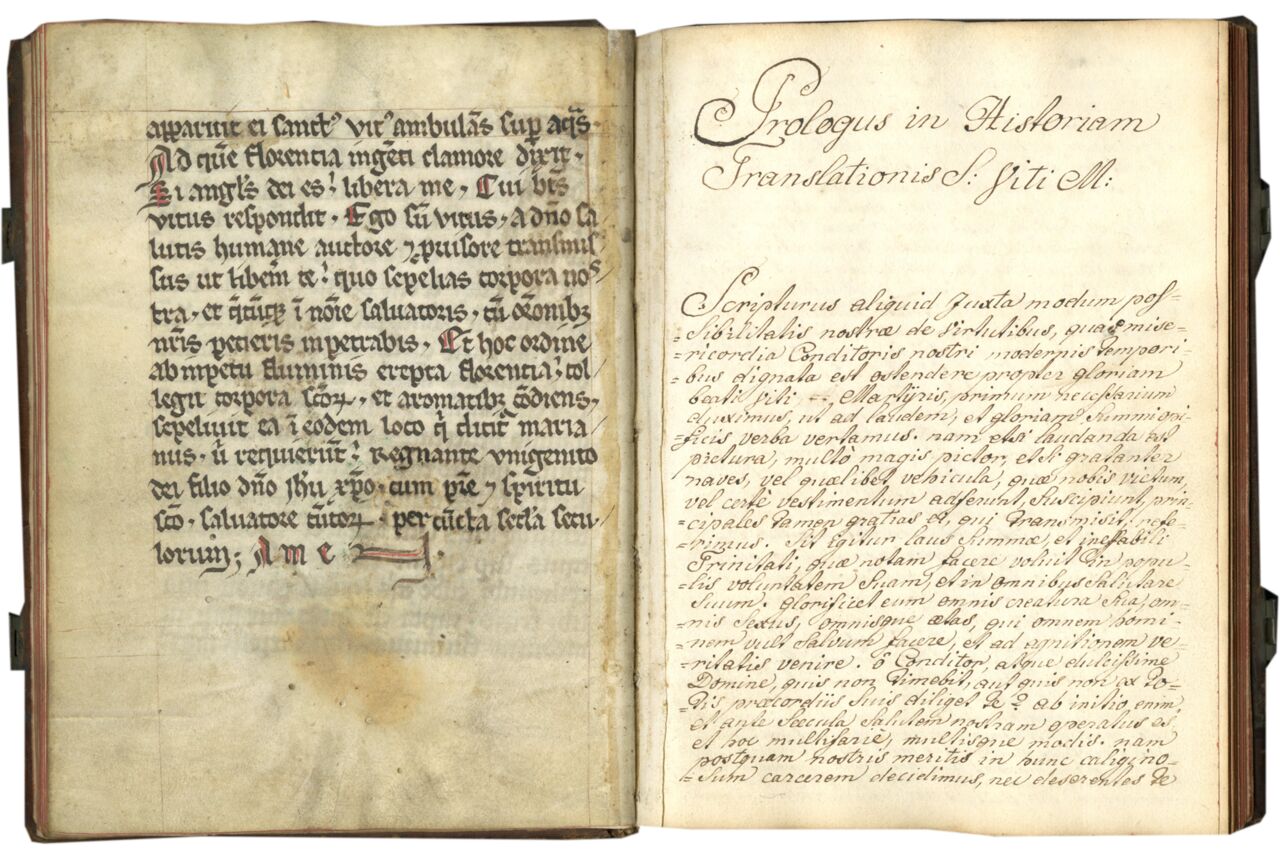 apparuit ei sanctꝰ vitꝰ ambulās sup aq̄s.
Ad quē florentia ingēti clamore dixit.
Si angl̄s dei es: libera me, Cui bt̄s
vitus respondit. Ego sū vitus, a dn̄o sa
lutis humane auctore ⁊ ꝓuisore transmis
sus ut liberē te: quo sepelias corpora nos
tra, et q̄cūqꝫ ī nōie saluatoris, cū or̄onibꝫ
nr̄is petieris inpetrabis. Et hoc ordine
ab inpetu fluminis erepta florentia: col
legit corpora scōꝝ, et aromatibꝫ cōdiens,
sepeliuit ea ī eodem loco q̄ dicit᷑ maria
nus. ū requierūt: Regnante vnigenito
dei filio dn̄o ihu xp̄o. cum pr̄e ⁊ spiritu
scō. saluatore cūctoꝝ. per cūcta secl̄a secu
lorum; Ame
Prologus in Historiam
Translationis S: Viti M:
Scripturus aliquid Juxta modum pos=
=sibilitatis nostræ de virtutibus, quas mise=
=ricordia Conditoris nostri modernis tempori=
=bus dignata est ostendere propter gloriam
beati Viti --, Martyris, primum necessarium
duximus, ut ad laudem, et gloriam Summi oni=
=ficis, verba vertamus. nam etsi laudanda est
pictura, multò magis pictor, et si gratanter
naves, vel quælibet vehicula, quæ nobis victum,
vel certè vestimentum adferunt, suscipiunt, prin=
=cipales tamen gratias ei, qui transmisit, refe=
=rimus. Sit Egitur laus Summæ, et ineffabili
Trinitati, quæ notam facere voluit in popu=
=lis voluntatem Suam, et in omnibus Salutare
Suum. glorificet eum omnis creatura Sua, om=
=nis Sexus, omnisque ætas, qui omnem homi=
=nem vult Salvum facere, et ad agnitionem ve=
=ritatis venire. ô Conditor, atque dulcissime
Domine, quis non timebit, aut quis non ex to=
=tis præcordiis Suis diliget te? ab initio enim,
et ante Sæcula Salutem nostram operatus es,
et hoc multifariè, multisque modis. nam
postquam nostris meritis in hunc caligino=
=sum carcerem decidimus, nec deserentes te